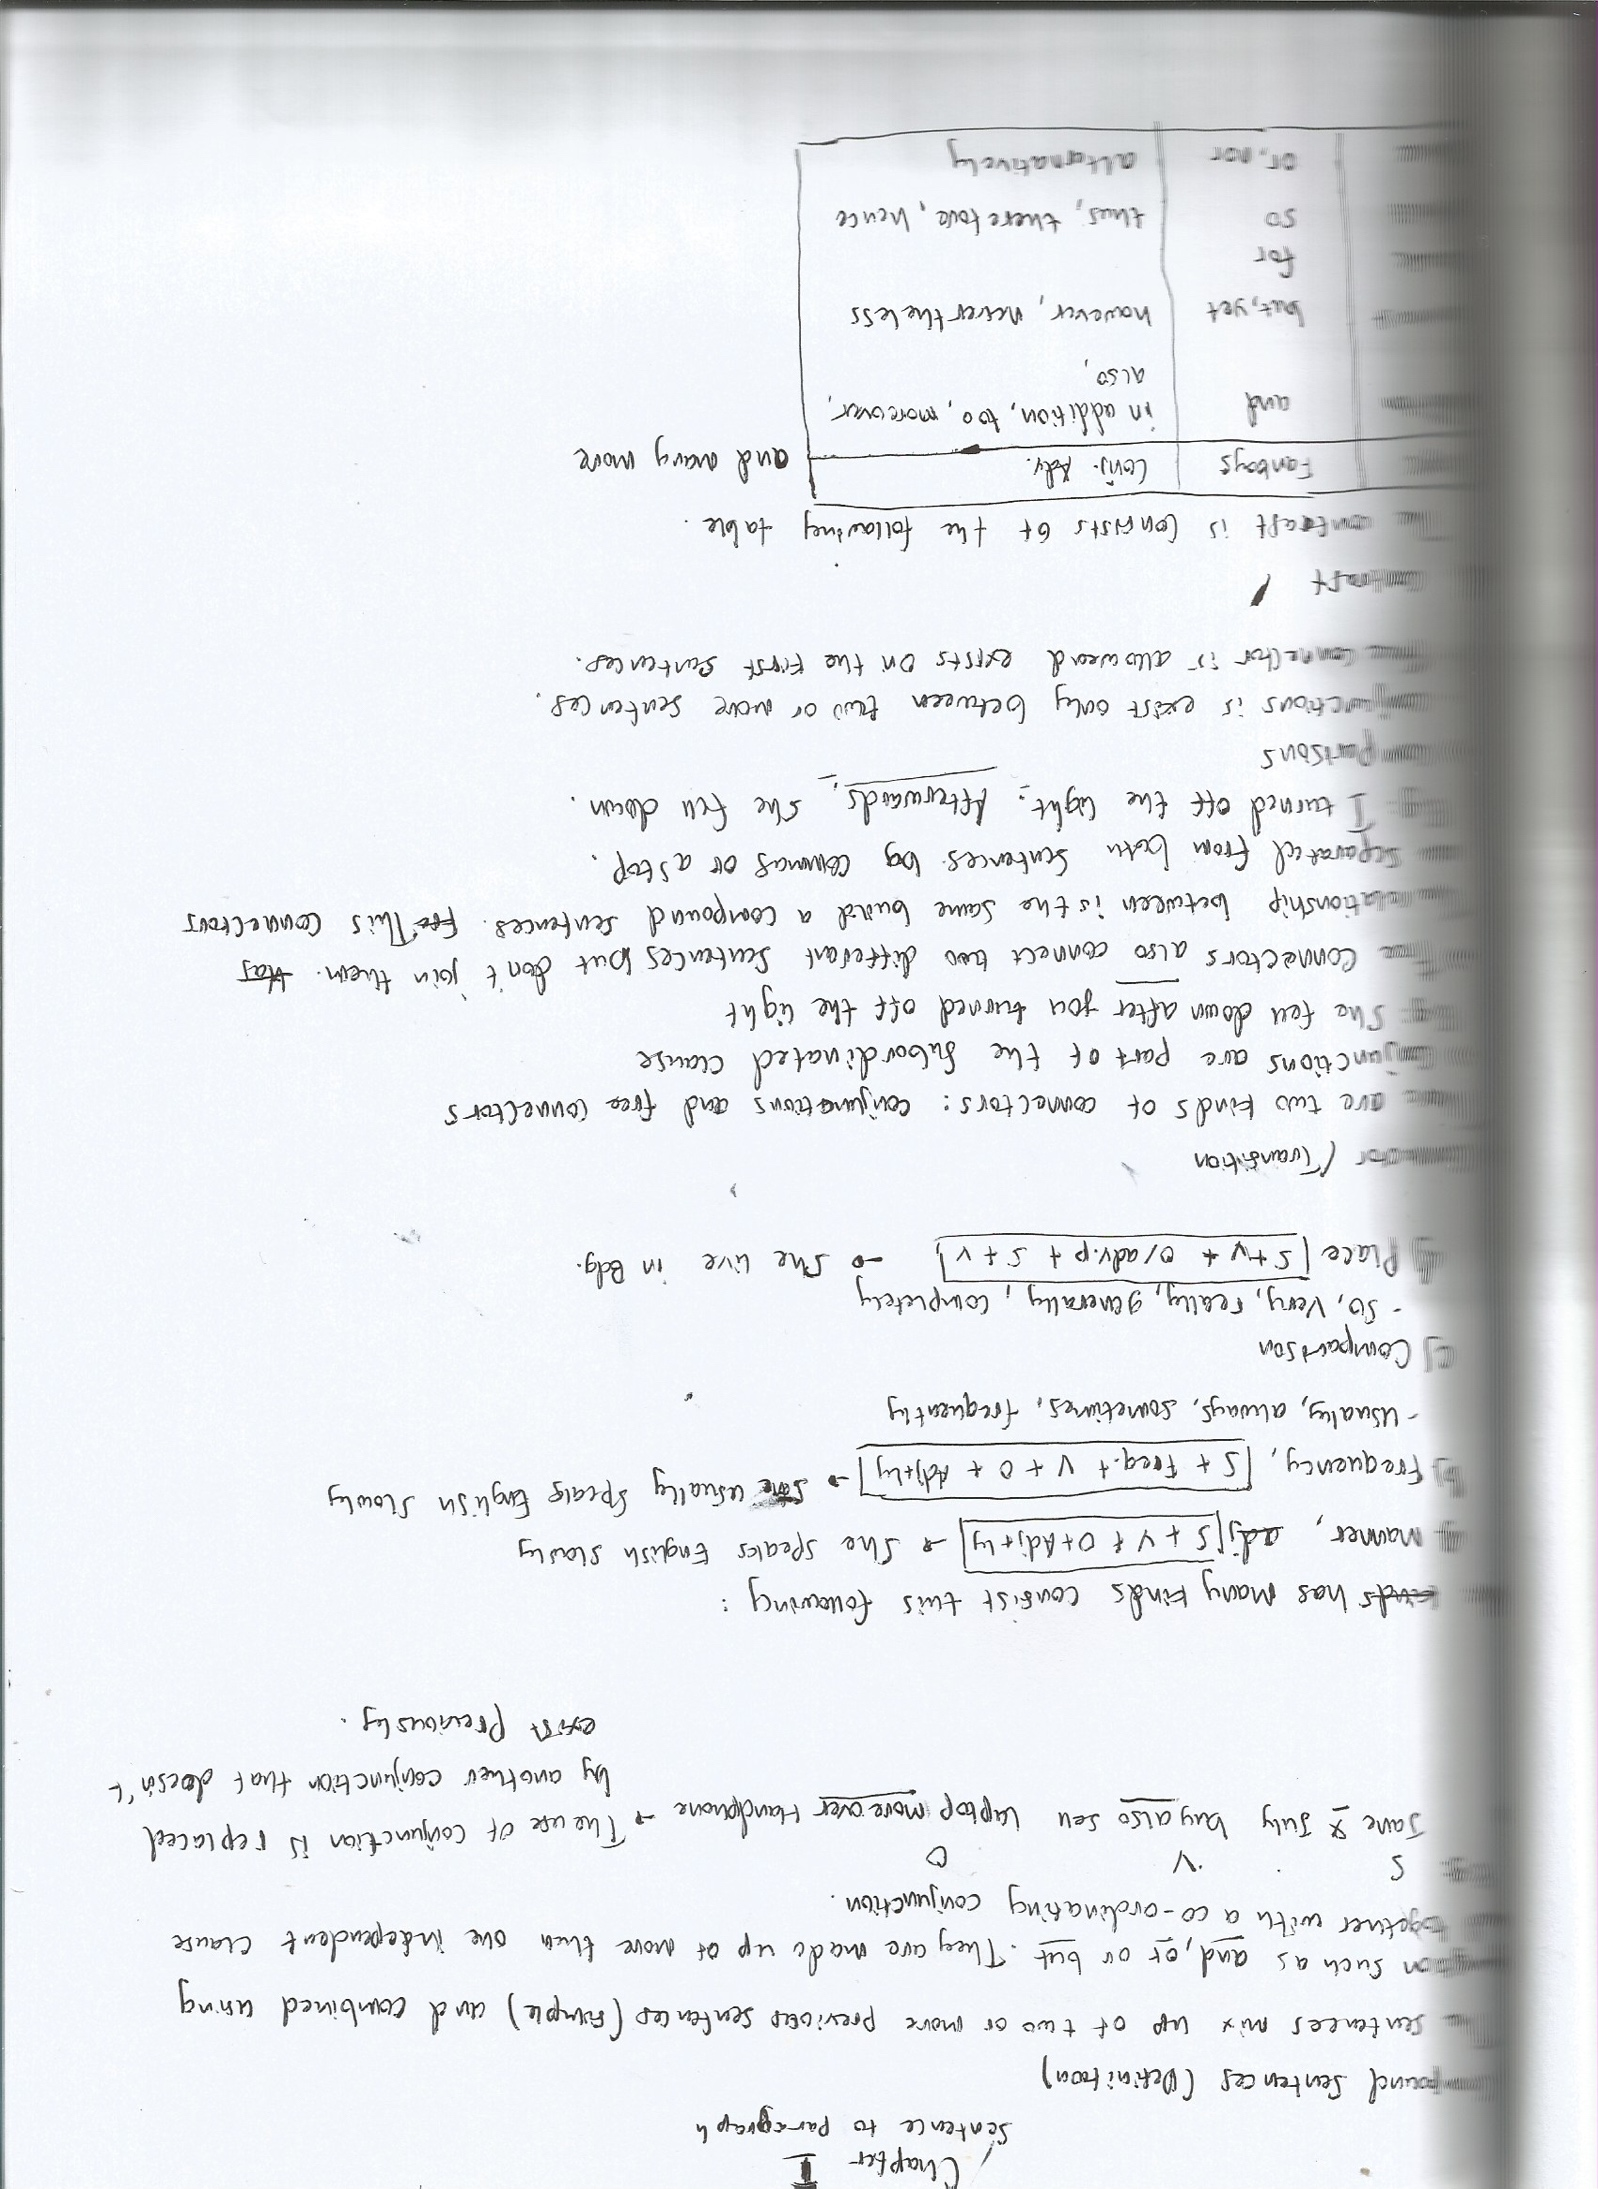 Chapter II
Sentence to Paragraph
Sentences (Definition)
sentences mix up of two or more previces sentences (simple) and combined using
such as and, or or but. They are made up of more than one independent clause
together with a co-ordinating conjunction.
S V O
Jane & July buy also sell laptop moreover Handphone → The use of conjunction is replaced
by another conjunction that doesn't
exist previously.
has many kinds consist this following :
manner, adj [S + V + O + Adj+ly] → She speaks English slowly
b) Frequency, [S + Freq. + V + O + Adj+ly] → She usually speaks English slowly
- usually, always, sometimes, frequently
c) Comparison
- so, very, really, generally, completely
Place [S+V + O/adv.p + S + V] → She live in Bdg.
/ Transition
are two kinds of connectors : conjunctions and free connectors
are part of the subordinated clause
She fell down after you turned off the light
connectors also connect two different sentences but don't join them. Has
relationship between is the same build a compound sentences. For This connectors
separated from both sentences by commas or a stop.
I turned off the light : Afterwards, she fell down.
is exist only between two or more sentences.
connector is allowead exists on the first sentences.
is consists of the following table.
Fanboys Conj. Adv. and many more
and in addition, too, moreover,
also,
but, yet however, nevertheless
for
so thus, therefore, hence
or, nor alternatively